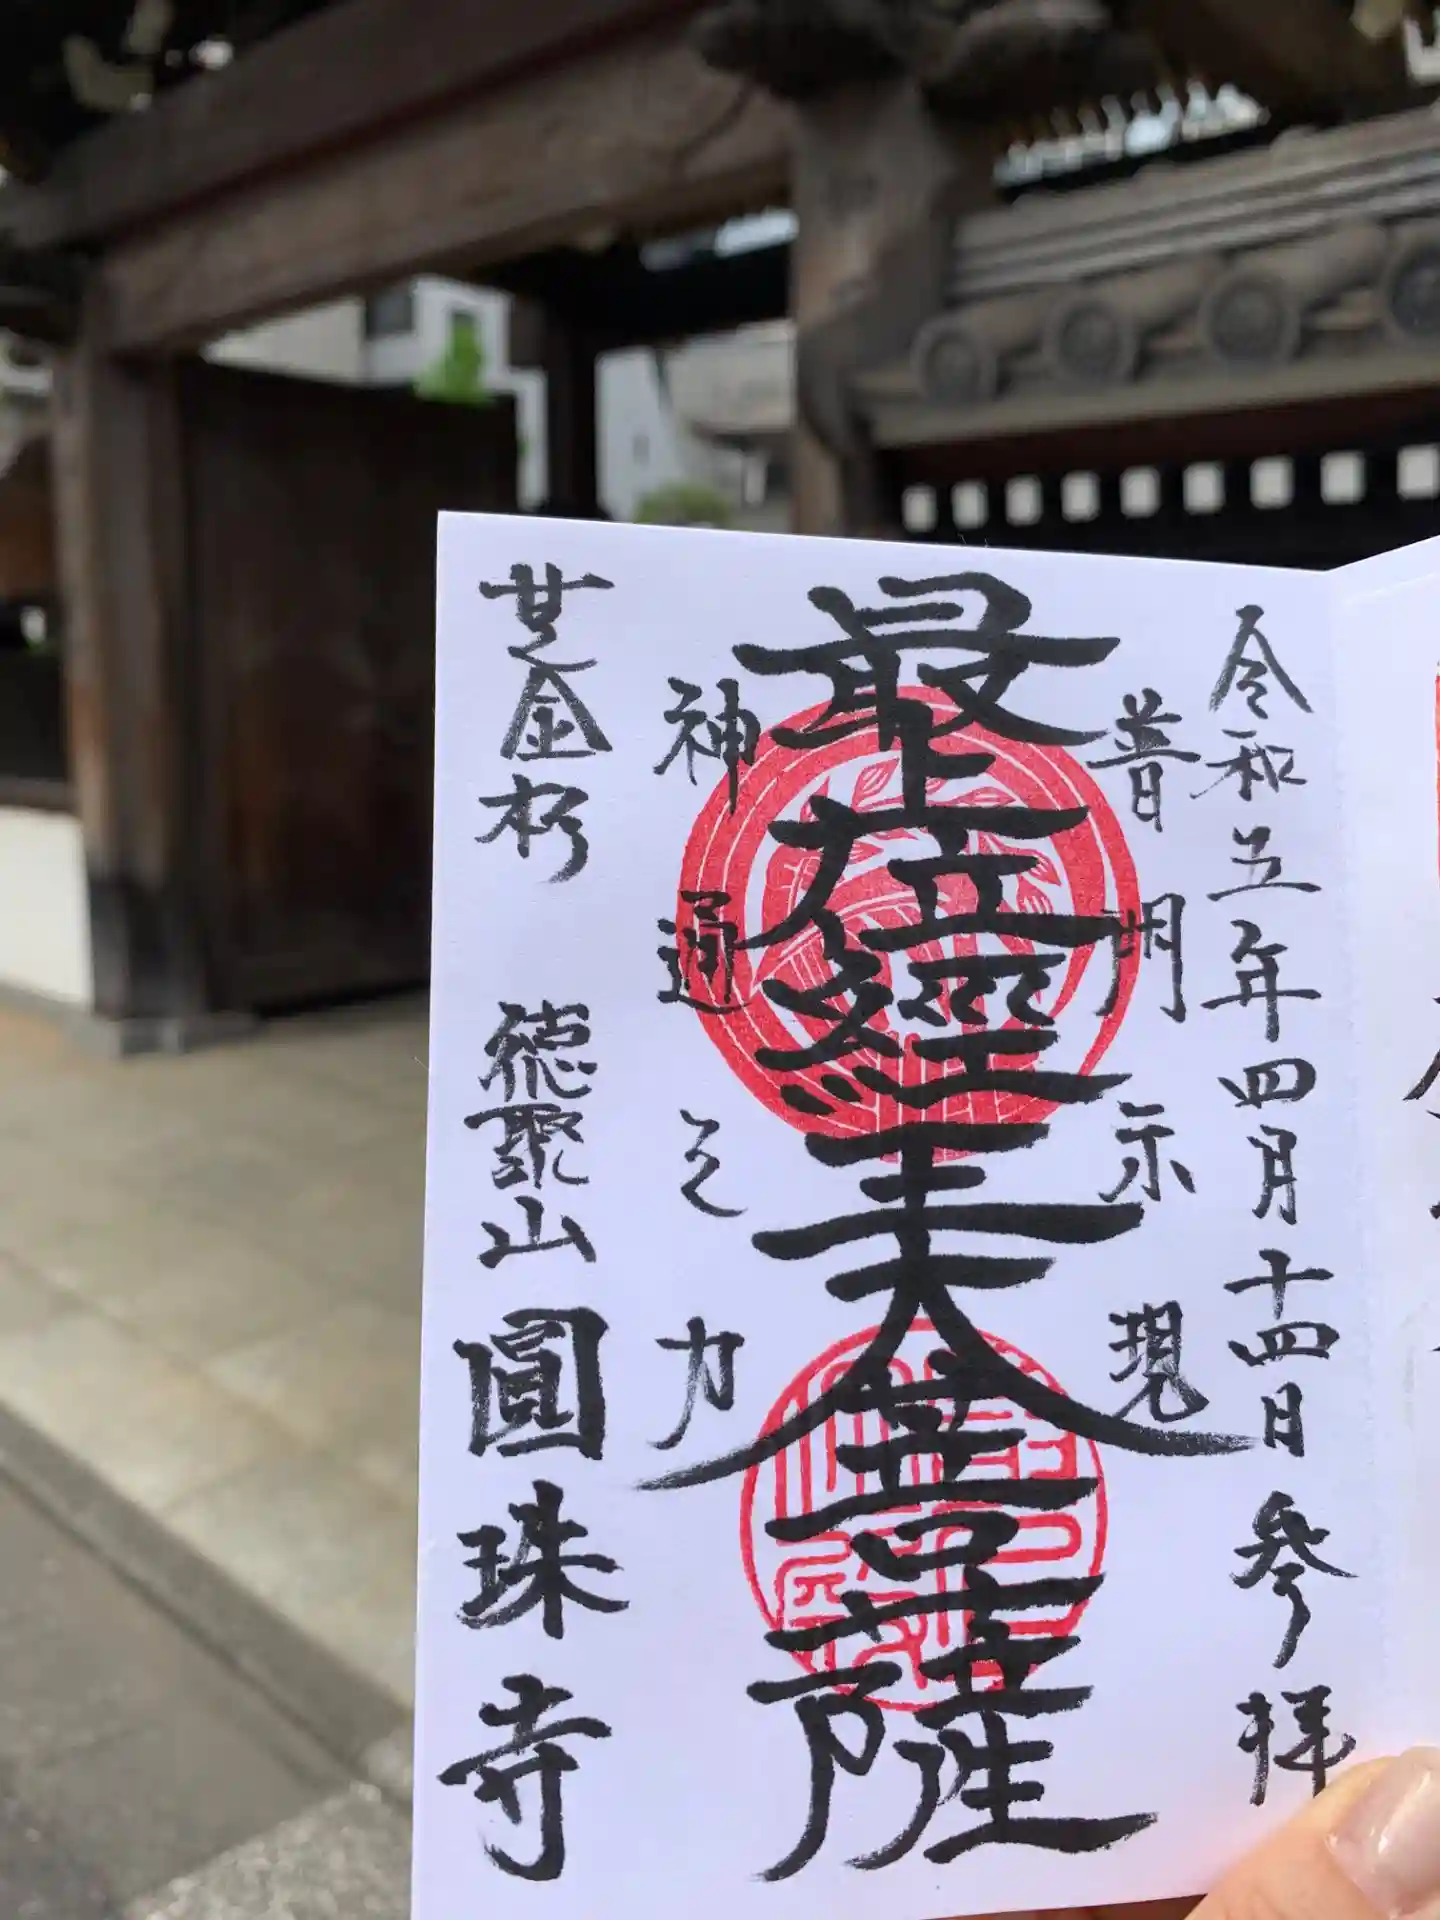 令和五年四月十四日 参拝
普明示現
最上位経王大善菩薩
神通之力
芝金杉 徳聚山 圓珠寺